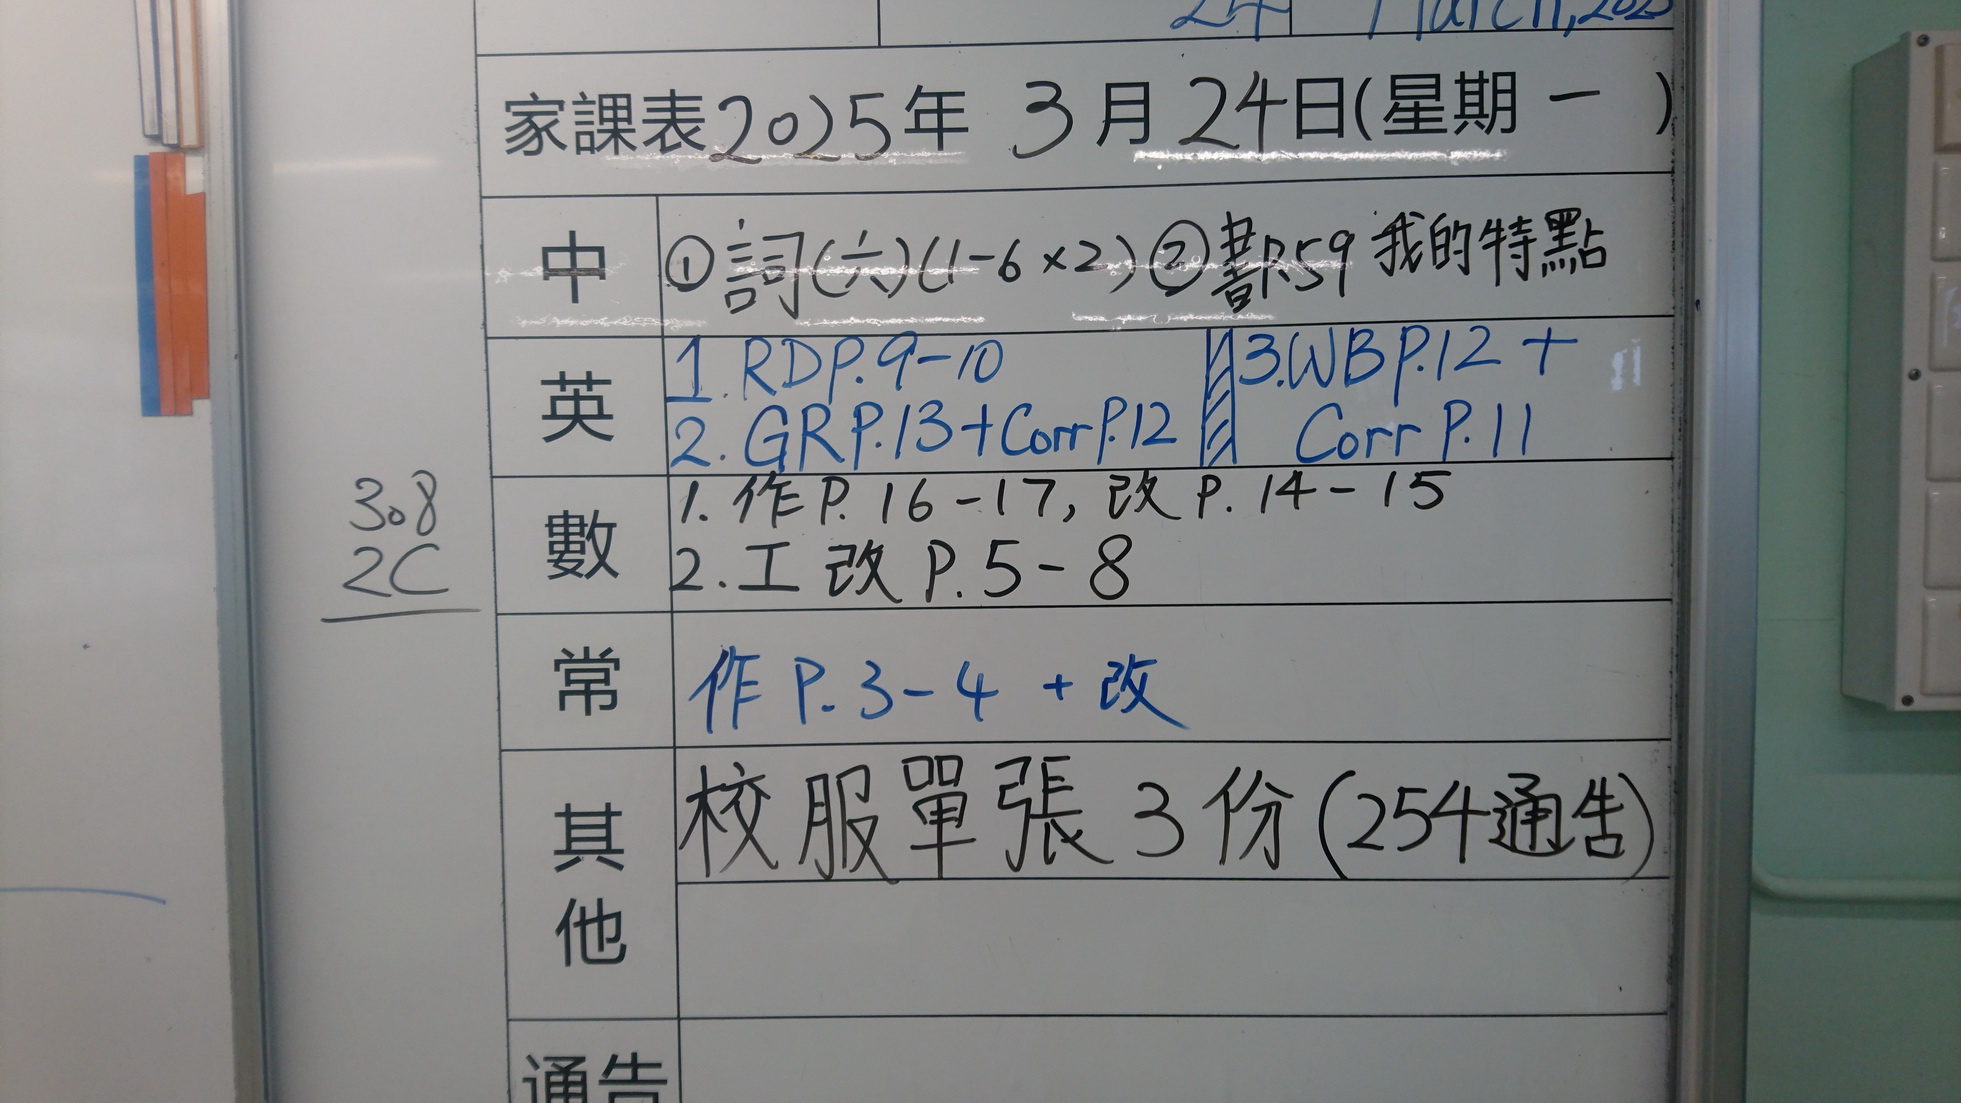 24 March, 2025
家課表2025年 3月24日(星期一)
中 ①詞(六)(1-6×2) ②書P.59 我的特點
英 1. RD P.9-10
2. GR P.13+Corr P.12
3. WB P.12 +
Corr P.11
308
2C
數 1. 作 P. 16-17, 改 P. 14-15
2. 工改 P. 5-8
常 作 P. 3-4 + 改
其他 校服單張3份(254通告)
通告